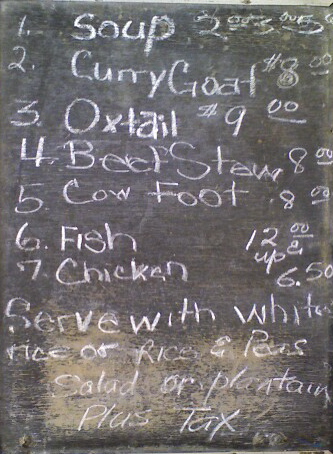 1. Soup 2.00 3.00 5
2. Curry Goat $8.00
3. Oxtail $9.00
4. Beef Stew. 8.00
5 Cow Foot .8.00
6. Fish 12.00 & up
7. Chicken 6.50
Serve with white
rice or Rice & Peas
Salad or plantain
Plus Tax